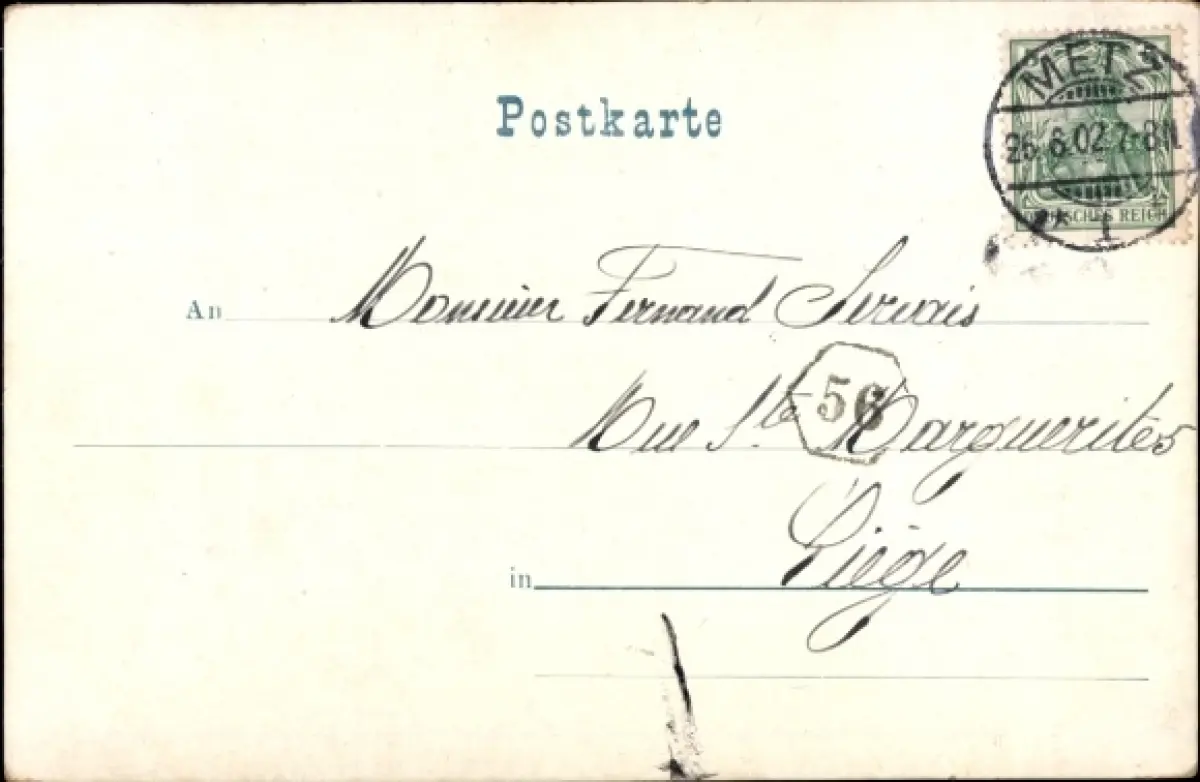 Postkarte
METZ
26.6.02.7-8N
DEUTSCHES REICH
1
An Monsieur Fernand Servais
56
Rue Ste Marguerites
in Liège